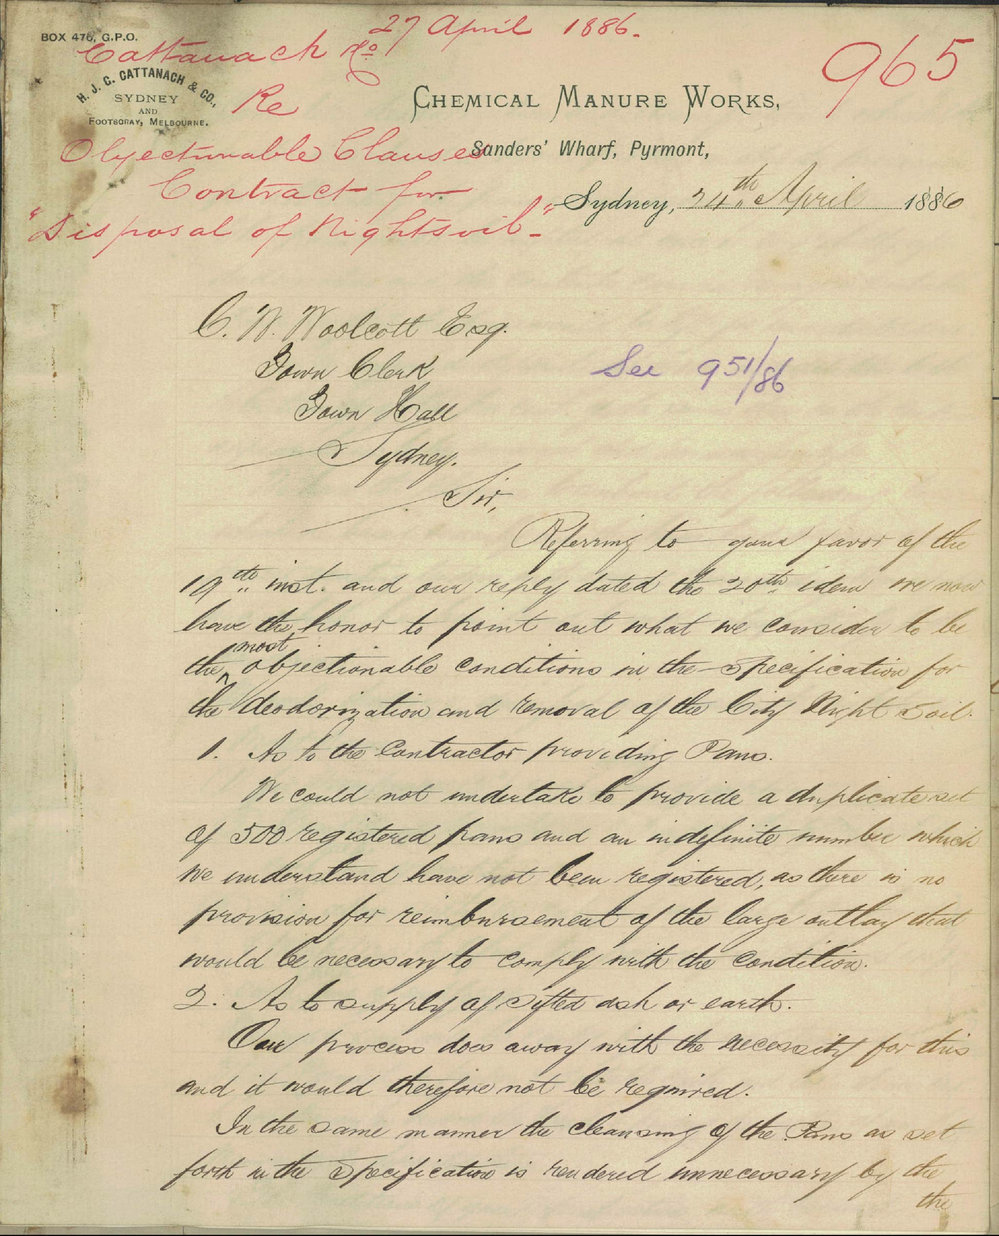 BOX 476, G.P.O.
27 April 1886.
Cattanach & Co
965
H. J. C. CATTANACH & CO.,
SYDNEY
AND
FOOTSCRAY, MELBOURNE.
Re
CHEMICAL MANURE WORKS,
Objectionable Clauses
Sanders' Wharf, Pyrmont,
Contract for
Sydney, 24th April 1886
"Disposal of Nightsoil"-
C. W. Woolcott Esq.
Town Clerk
See 951/86
Town Hall
Sydney.
Sir,
Referring to your favor of the
19th inst. and our reply dated the 20th idem we now
have the honor to point out what we consider to be
the most objectionable conditions in the Specification for
the deodorization and removal of the City Night Soil.
1. As to the Contractor providing Pans.
We could not undertake to provide a duplicate set
of 500 registered pans and an indefinite number which
we understand have not been registered, as there is no
provision for reimbursement of the large outlay that
would be necessary to comply with the condition.
2. As to supply of sifted ash or earth.
Our process does away with the necessity for this
and it would therefore not be required.
In the same manner the cleansing of the Pans as set
forth in the Specification is rendered unnecessary by the
the